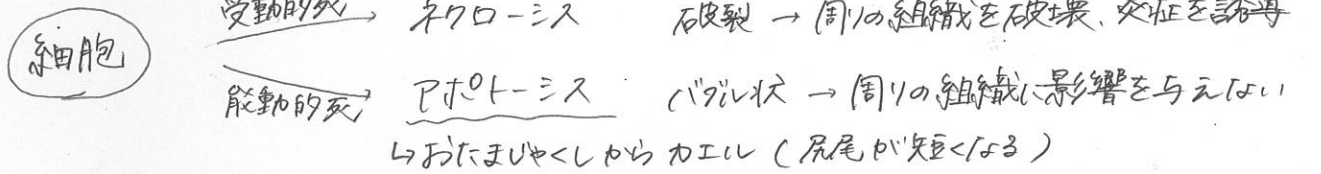 受動的死 → ネクローシス 破裂 → 周りの組織を破壊、炎症を誘導
細胞
能動的死 → アポトーシス バブル状 → 周りの組織に影響を与えない
↳ おたまじゃくしから カエル (尻尾が短くなる)